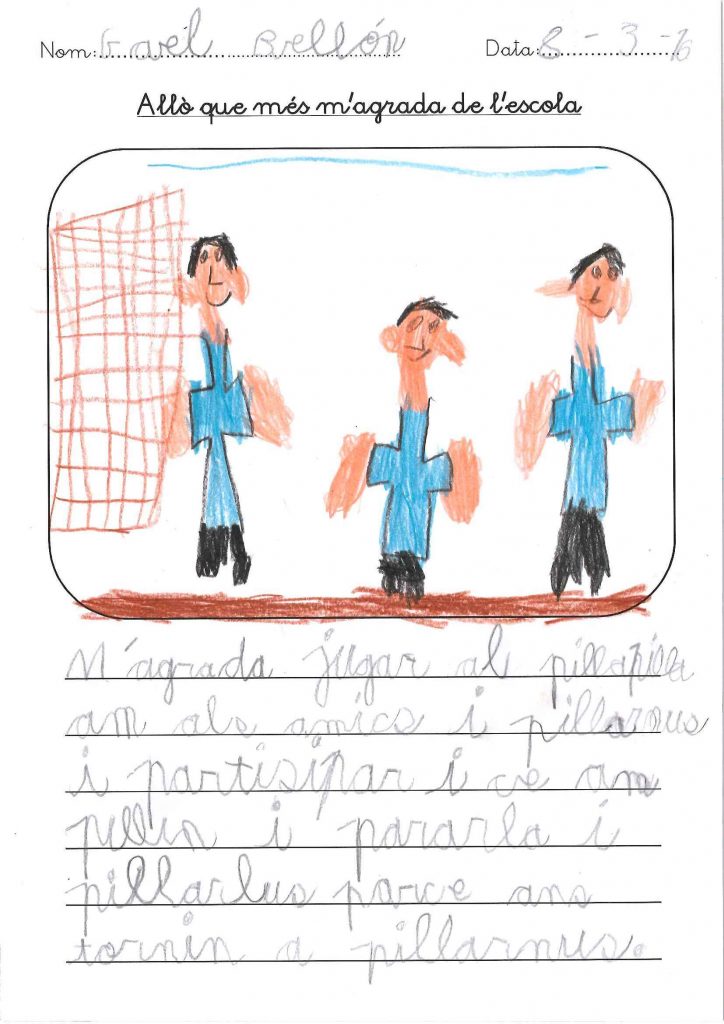 Nom: Gael Bellón Data: 8-3-16
Allò que més m'agrada de l'escola
M'agrada jugar al pillapilla
am als amics i pillarnus
i partisipar i ce am
pillin i pararla i
pillarlus parce ans
tornin a pillarnus.